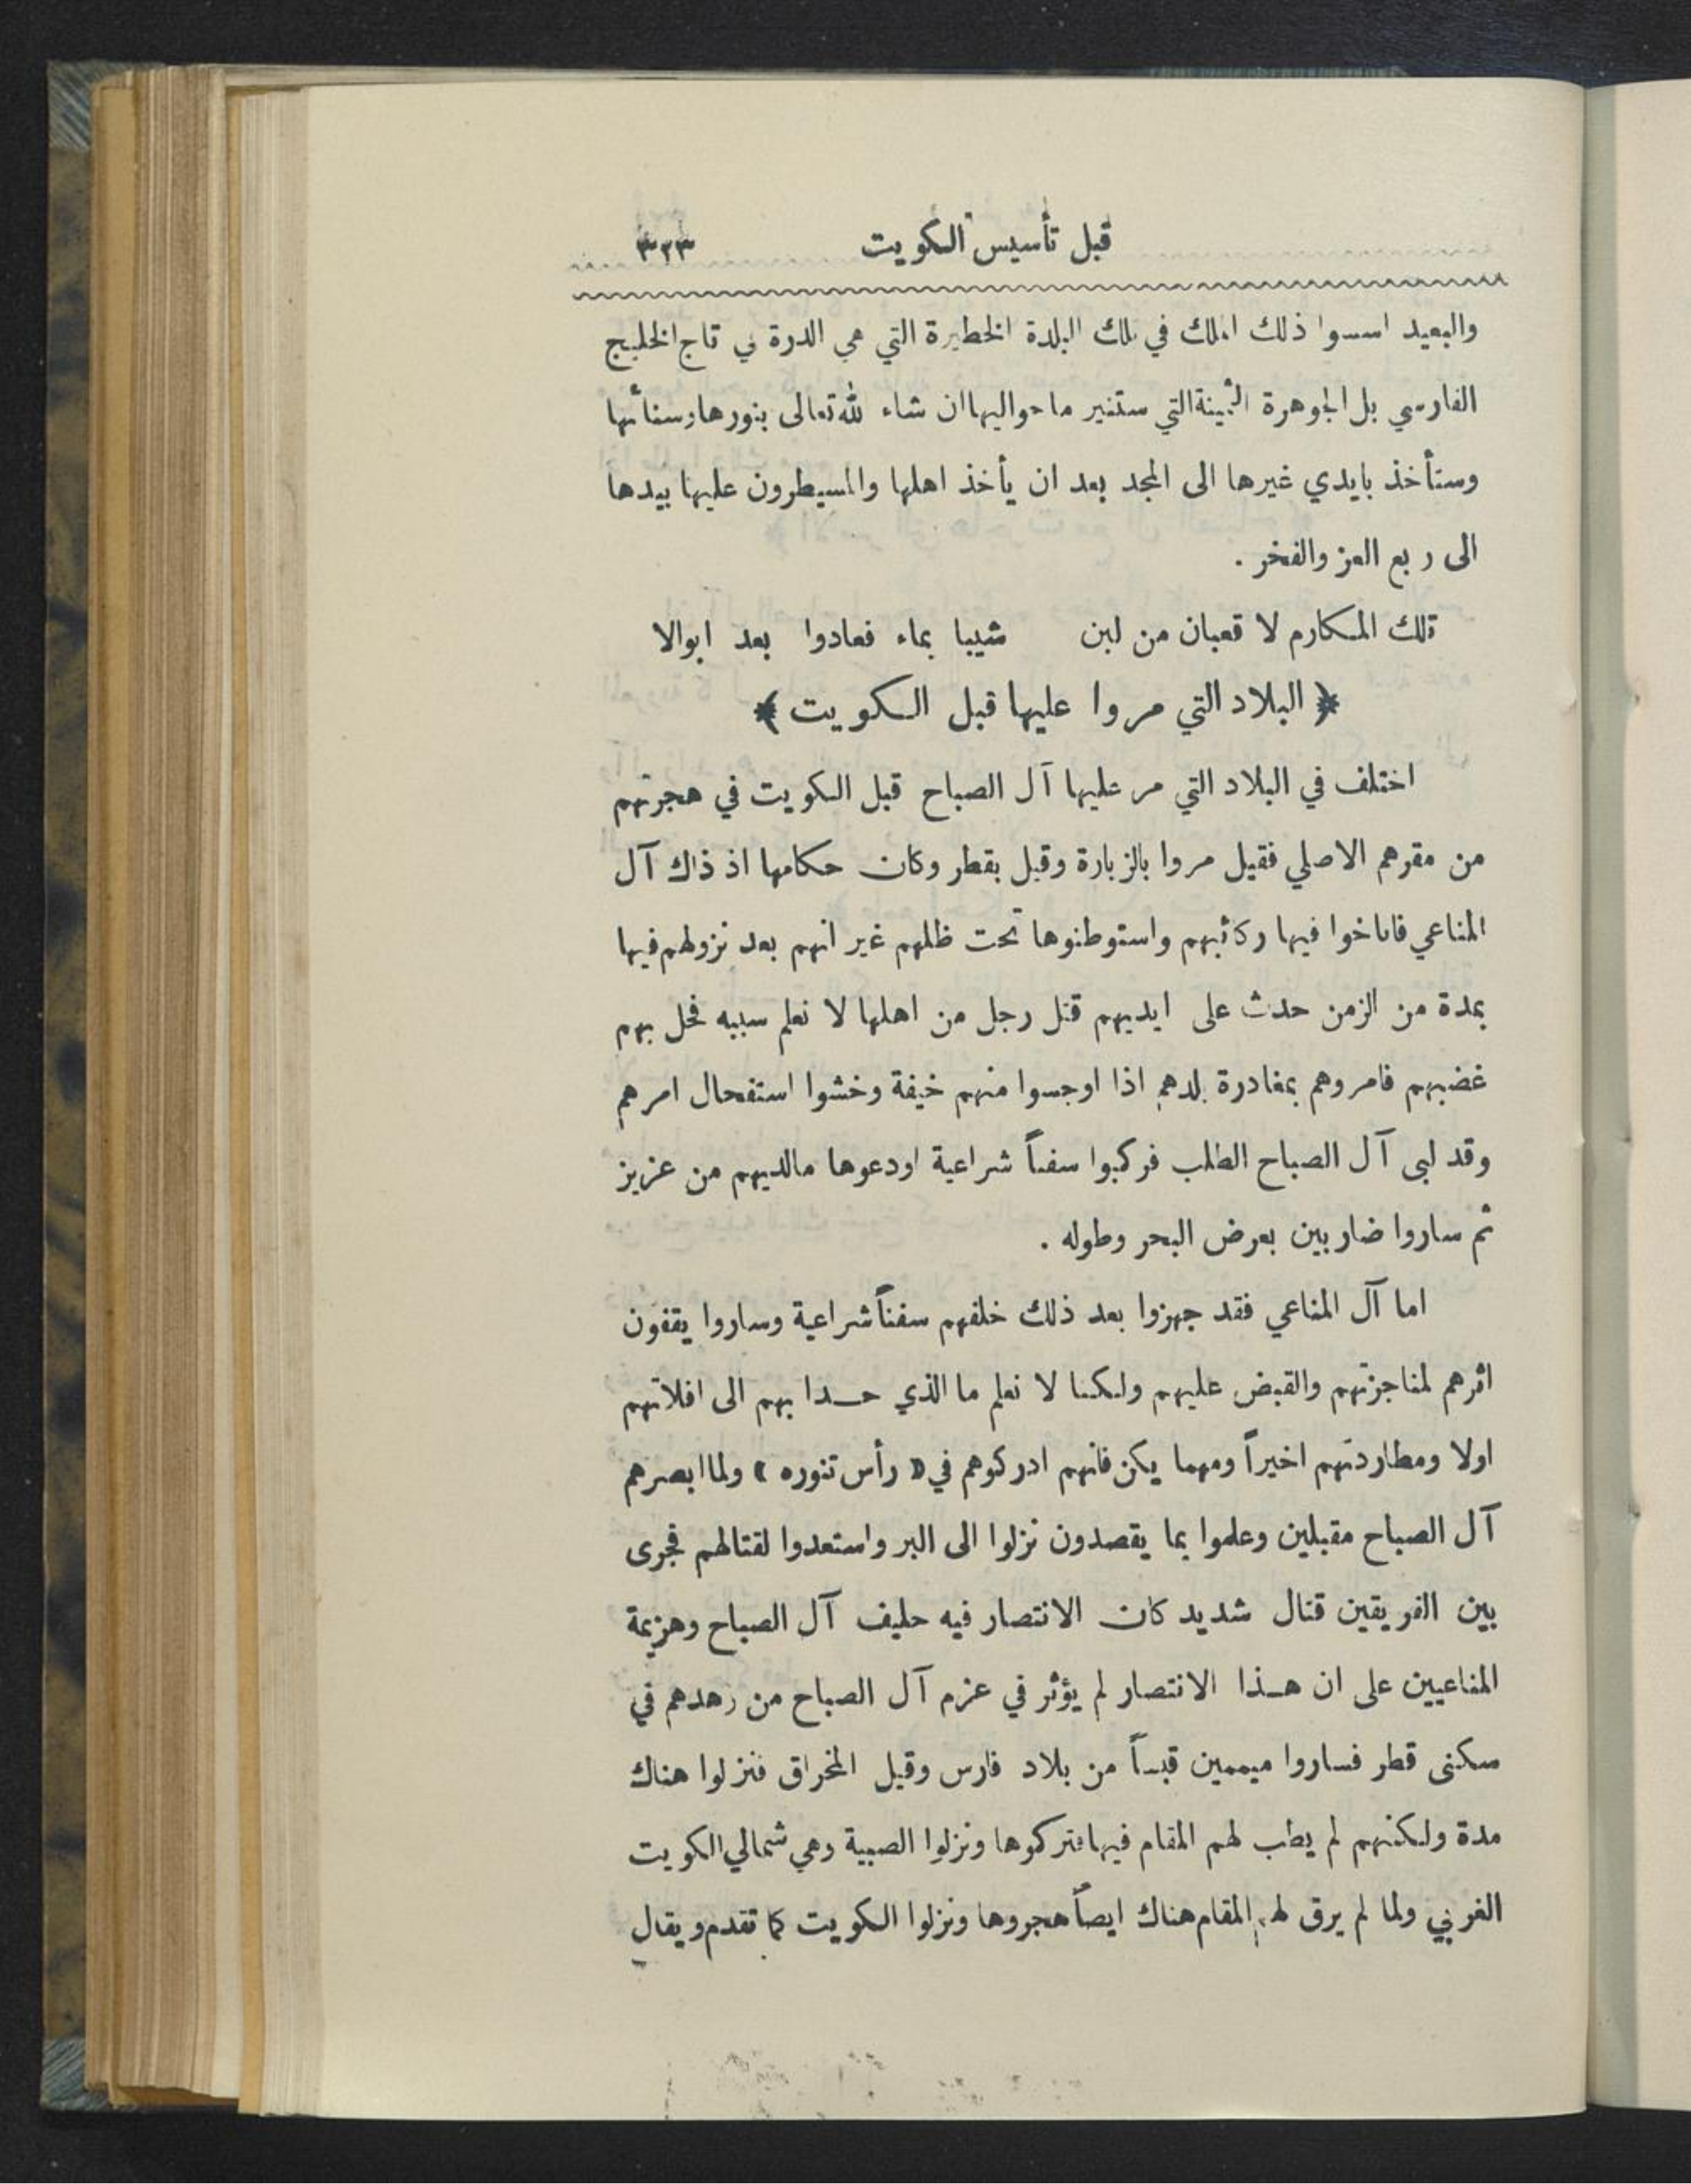 قبل تأسيس الكويت ٣٢٣
والبعيد اسسوا ذلك الملك في تلك البلدة الخطيرة التي هي الدرة في تاج الخليج
الفارسي بل الجوهرة الثمينة التي ستنير ما حواليها ان شاء لله تعالى بنورها وسنائها
وستأخذ بايدي غيرها الى المجد بعد ان يأخذ اهلها والمسيطرون عليها بيدها
الى ربع العز والفخر .
تلك المكارم لا قعبان من لبن شيبا بماء فعادوا بعد ابوالا
﴿ البلاد التي مروا عليها قبل الكويت ﴾
اختلف في البلاد التي مر عليها آل الصباح قبل الكويت في هجرتهم
من مقرهم الاصلي فقيل مروا بالزبارة وقبل بقطر وكان حكامها اذ ذاك آل
المناعي فاناخوا فيها ركائبهم واستوطنوها تحت ظلهم غير انهم بعد نزولهم فيها
بمدة من الزمن حدث على ايديهم قتل رجل من اهلها لا نعلم سببه فحل بهم
غضبهم فامروهم بمغادرة بلدهم اذا اوجسوا منهم خيفة وخشوا استفحال امرهم
وقد لبى آل الصباح الطلب فركبوا سفناً شراعية اودعوها مالديهم من عزيز
ثم ساروا ضاربين بعرض البحر وطوله .
اما آل المناعي فقد جهزوا بعد ذلك خلفهم سفناً شراعية وساروا يقفون
اثرهم لمناجزتهم والقبض عليهم ولكنا لا نعلم ما الذي حدا بهم الى افلاتهم
اولا ومطاردتهم اخيراً ومهما يكن فانهم ادركوهم في « رأس تنوره » ولما ابصرهم
آل الصباح مقبلين وعلموا بما يقصدون نزلوا الى البر واستعدوا لقتالهم فجرى
بين الفريقين قتال شديد كان الانتصار فيه حليف آل الصباح وهزيمة
المناعيين على ان هذا الانتصار لم يؤثر في عزم آل الصباح من زهدهم في
سكنى قطر فساروا ميممين قبساً من بلاد فارس وقيل المخراق فنزلوا هناك
مدة ولكنهم لم يطب لهم المقام فيها فتركوها ونزلوا الصبية وهي شمالي الكويت
الغربي ولما لم يرق لهم المقام هناك ايضاً هجروها ونزلوا الكويت كما تقدم ويقال